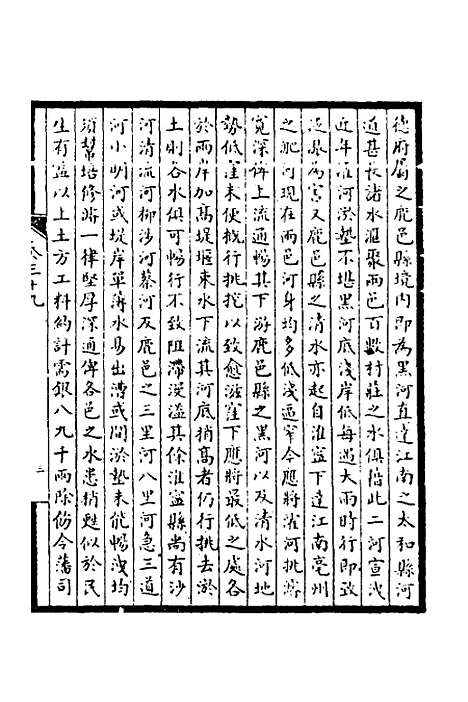 德府屬之鹿邑縣境内即為黑河直達江南之太和縣河
道甚長諸水滙聚兩邑百數村莊之水俱藉此二河宣洩
近年淮河淤墊不堪黑河底淺岸低每遇大雨時行即致
泛漲為害又鹿邑縣之清水亦起自淮寧下達江南亳州
之淝河現在兩邑河身均多低淺逼窄今應將淮河挑濬
寬深俾上流通暢其下游鹿邑縣之黑河以及清水河地
勢低窪未便概行挑挖以致愈滋窪下應將最低之處各
於兩岸加高堤堰束水下流其河底稍高者仍行挑去淤
土則各水俱可暢行不致阻滯漫溢其餘淮寧縣尚有沙
河清流河柳沙河蔡河及鹿邑之三里河八里河急三道
河小明河或堤岸單薄水易出漕或間淤墊未能暢洩均
須幫培修濬一律堅厚深通俾各邑之水患稍甦似於民
生有益以上土方工料約計需銀八九千兩除飭今藩司
卷三十九
三